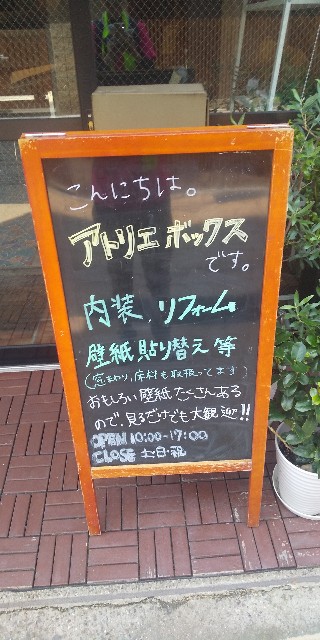 こんにちは。
アトリエボックス
です。
内装、リフォーム
壁紙貼り替え 等
(窓まわり、床材も取扱ってます)
おもしろい壁紙たくさんある
ので、見るだけでも大歓迎!!
OPEN 10:00-17:00
CLOSE 土・日・祝